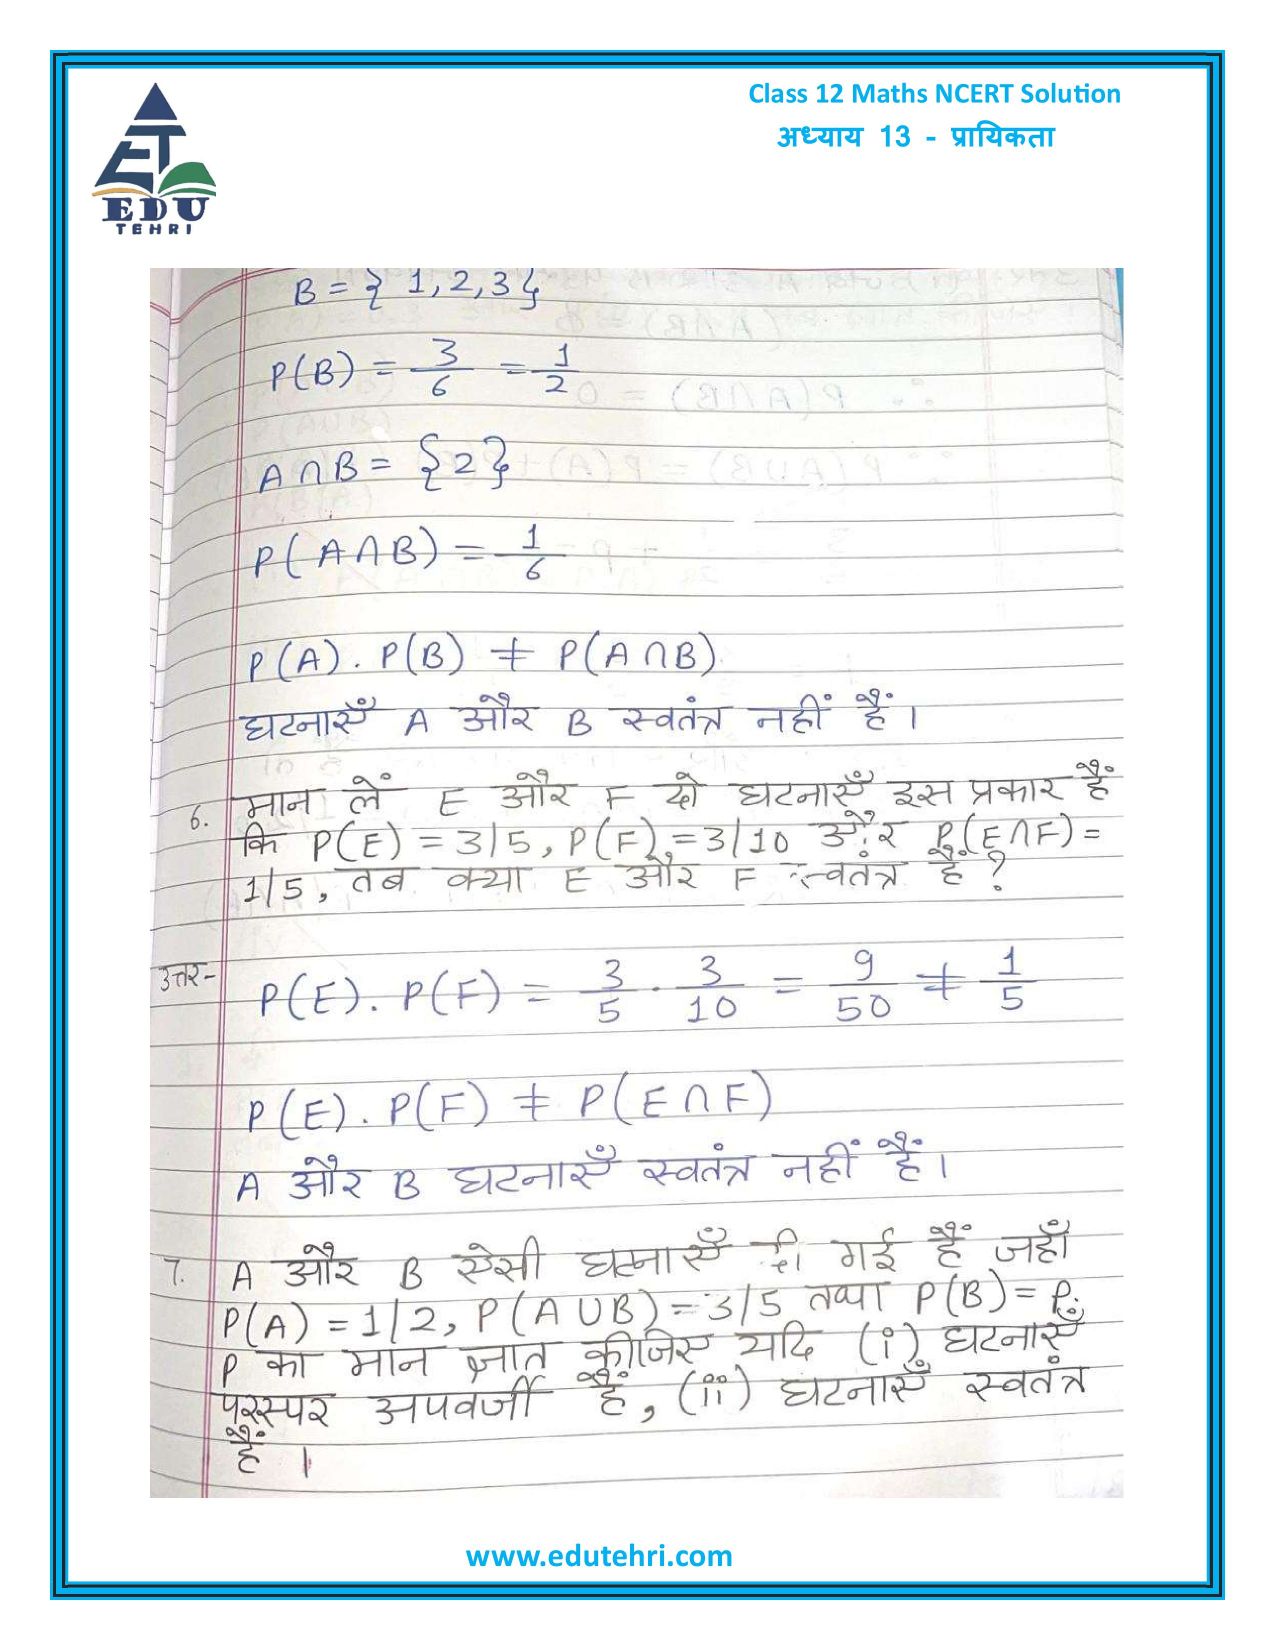 Class 12 Maths NCERT Solution
अध्याय 13 - प्रायिकता
EDU
TEHRI
B = { 1, 2, 3 }
P(B) = 3/6 = 1/2
A ∩ B = {2}
P(A ∩ B) = 1/6
P(A) . P(B) ≠ P(A ∩ B)
घटनाएँ A और B स्वतंत्र नहीं हैं।
6. मान लें E और F दो घटनाएँ इस प्रकार हैं
कि P(E) = 3/5, P(F) = 3/10 और P(E ∩ F) =
1/5, तब क्या E और F स्वतंत्र हैं?
उत्तर- P(E). P(F) = 3/5 . 3/10 = 9/50 ≠ 1/5
P(E). P(F) ≠ P(E ∩ F)
A और B घटनाएँ स्वतंत्र नहीं हैं।
7. A और B ऐसी घटनाएँ दी गई हैं जहाँ
P(A) = 1/2, P(A ∪ B) = 3/5 तथा P(B) = p.
p का मान ज्ञात कीजिए यदि (i) घटनाएँ
परस्पर अपवर्जी हैं, (ii) घटनाएँ स्वतंत्र
हैं।
www.edutehri.com